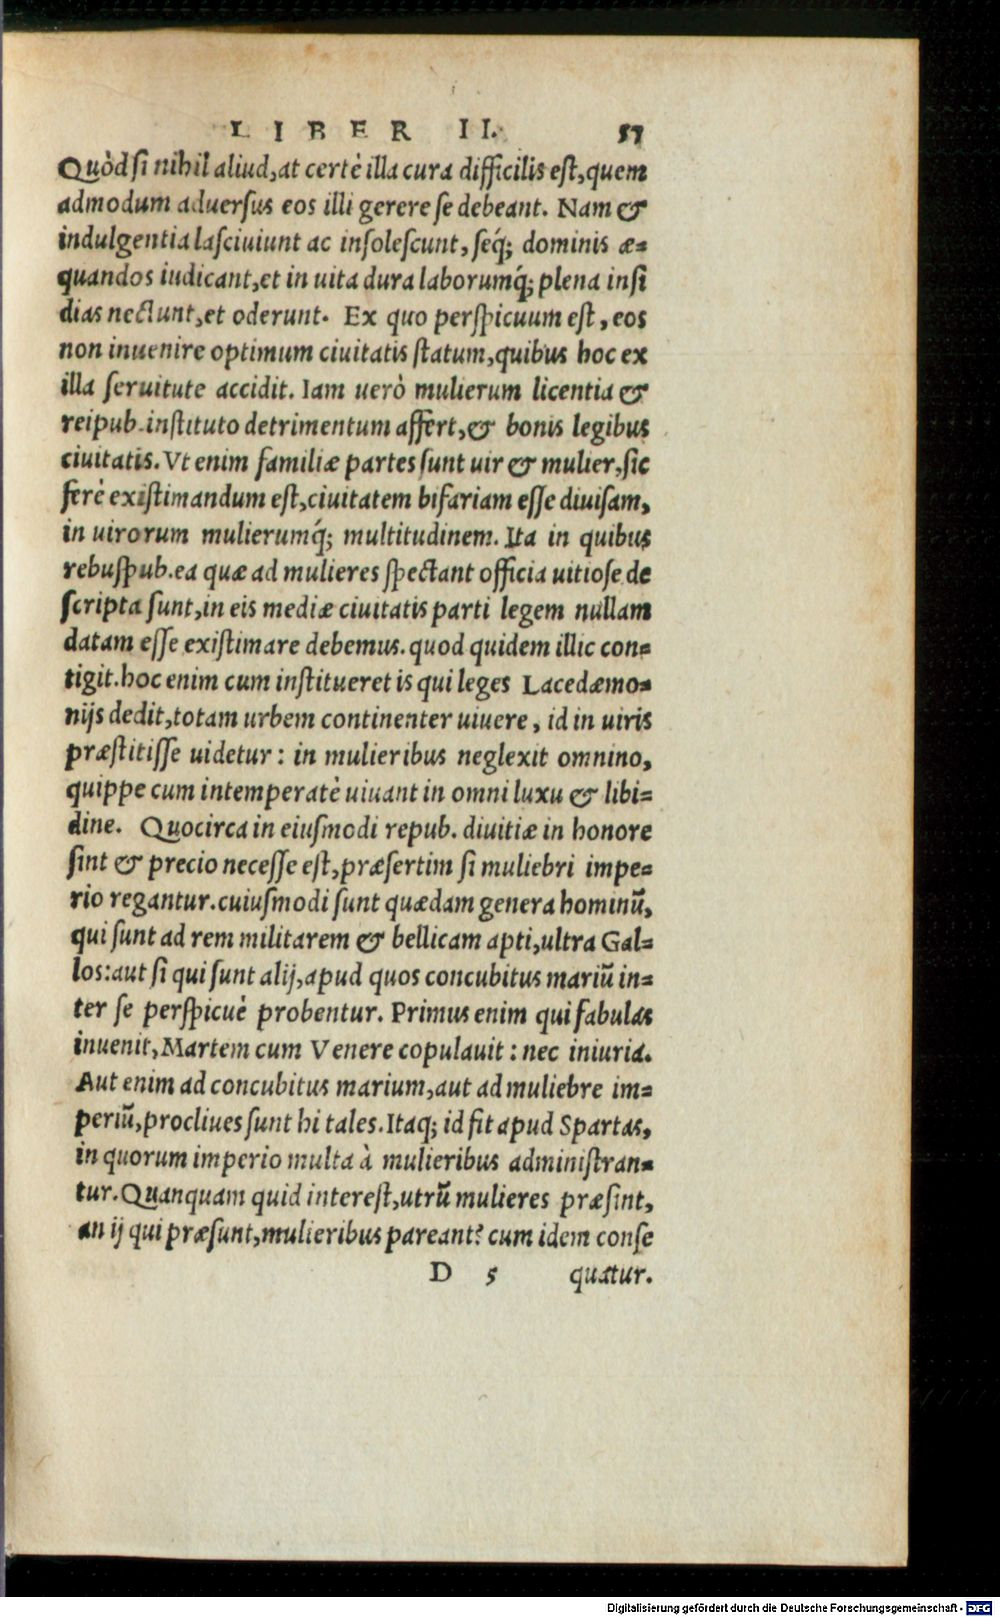 LIBER II. 57
Quòd si nihil aliud, at certè illa cura difficilis est, quem
admodum aduersus eos illi gerere se debeant. Nam &
indulgentia lasciuiunt ac insolescunt, seq́; dominis æ-
quandos iudicant, et in uita dura laborumq́; plena insi
dias nectunt, et oderunt. Ex quo perspicuum est, eos
non inuenire optimum ciuitatis statum, quibus hoc ex
illa seruitute accidit. Iam uerò mulierum licentia &
reipub. instituto detrimentum affert, & bonis legibus
ciuitatis. Vt enim familiæ partes sunt uir & mulier, sic
ferè existimandum est, ciuitatem bifariam esse diuisam,
in uirorum mulierumq́; multitudinem. Ita in quibus
rebuspub. ea quæ ad mulieres spectant officia uitiose de
scripta sunt, in eis mediæ ciuitatis parti legem nullam
datam esse existimare debemus. quod quidem illic con-
tigit. hoc enim cum institueret is qui leges Lacedæmo-
nijs dedit, totam urbem continenter uiuere, id in uiris
præstitisse uidetur: in mulieribus neglexit omnino,
quippe cum intemperatè uiuant in omni luxu & libi-
dine. Quocirca in eiusmodi repub. diuitiæ in honore
sint & precio necesse est, præsertim si muliebri impe-
rio regantur. cuiusmodi sunt quædam genera hominū,
qui sunt ad rem militarem & bellicam apti, ultra Gal-
los: aut si qui sunt alij, apud quos concubitus mariū in-
ter se perspicuè probentur. Primus enim qui fabulas
inuenit, Martem cum Venere copulauit: nec iniuria.
Aut enim ad concubitus marium, aut ad muliebre im-
periū, procliues sunt hi tales. Itaq; id fit apud Spartas,
in quorum imperio multa à mulieribus administran-
tur. Quanquam quid interest, utrū mulieres præsint,
an ij qui præsunt, mulieribus pareant? cum idem conse
D 5 quatur.
Digitalisierung gefördert durch die Deutsche Forschungsgemeinschaft - DFG